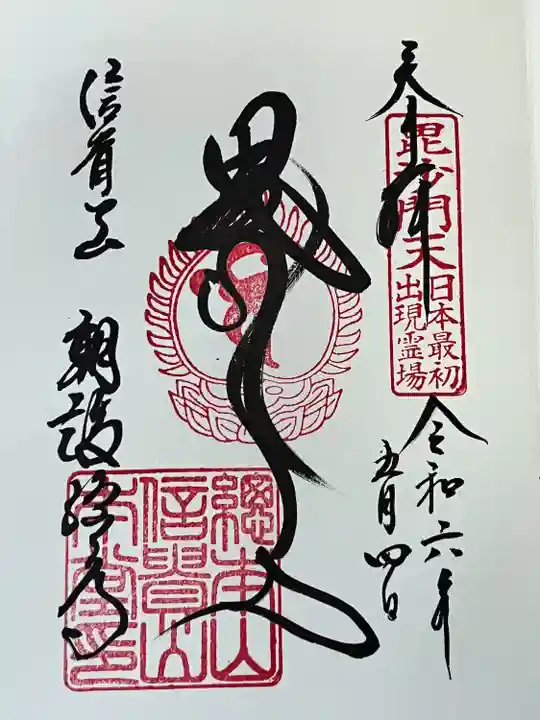 奉拝
毘沙門天
日本最初
出現霊場
令和六年
五月四日
信貴山 朝護孫子寺
總本山
信貴山